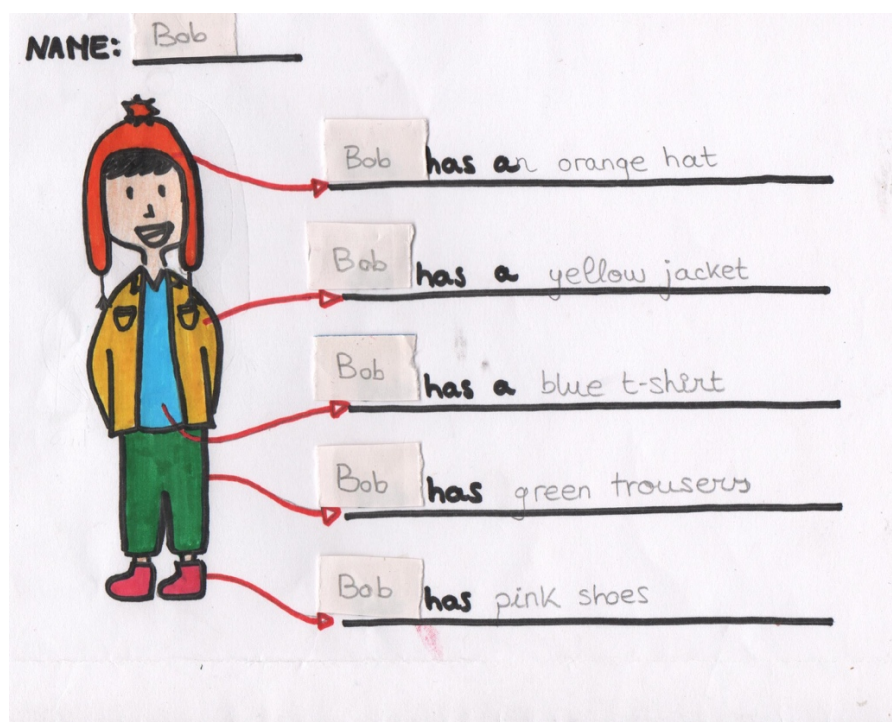 NAME: Bob
Bob has an orange hat
Bob has a yellow jacket
Bob has a blue t-shirt
Bob has green trousers
Bob has pink shoes